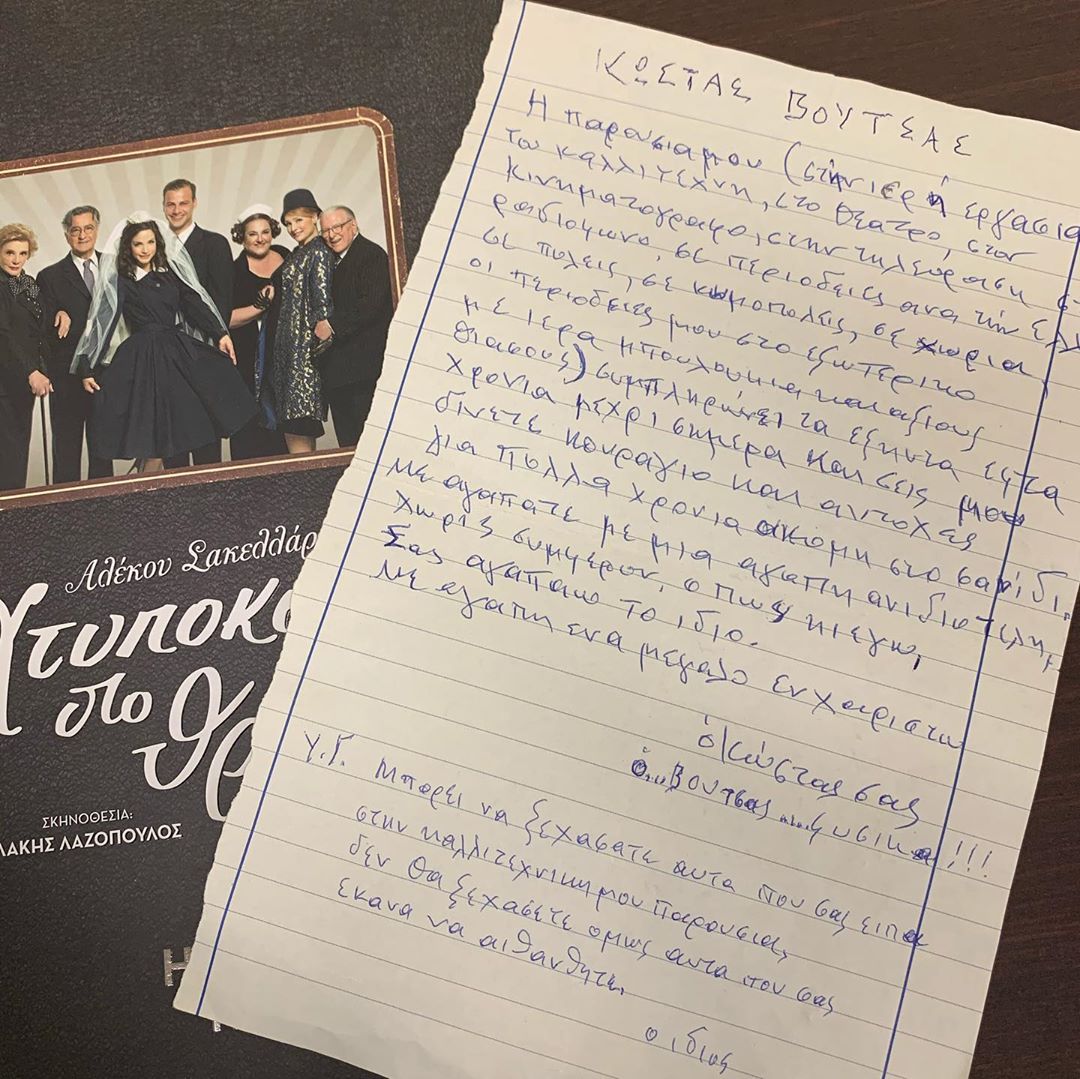 Αλέκου Σακελλάρ
Χτυποκά
στο
θρ
ΣΚΗΝΟΘΕΣΙΑ:
ΛΑΚΗΣ ΛΑΖΟΠΟΥΛΟΣ
Η
ΚΩΣΤΑΣ ΒΟΥΤΣΑΣ
Η παρουσια μου (στην ιερή εργασια
του καλλιτεχνη, στο θεατρο, στον
κινηματογραφο, στην τηλεοραση στ
ραδιοφωνο, σε περιοδειες ανα την Ελλ
σε πολεις, σε κωμοπολεις, σε χωρια,
οι περιοδειες μου στο εξωτερικο
με ιερα μπουλουκια και αξιους
θιασους) συμπληρώνει τα εξηντα εφτα
χρονια μεχρι σημερα και σεις μου
δινετε κουραγιο και αντοχες
για πολλα χρονια ακομη στο σανίδι.
Με αγαπατε με μια αγαπη ανιδιοτελη,
χωρις συμφερον, οπως κι εγω,
Σας αγαπαω το ιδιο.
Με αγαπη ενα μεγαλο ευχαριστω
ό Κώστας σας
ό.. Βουτσας .... φυσικα!!!
Υ.Γ. Μπορεί να ξεχασατε αυτα που σας ειπα
στην καλλιτεχνικη μου παρουσια,
δεν θα ξεχασετε ομως αυτα που σας
εκανα να αισθανθητε.
ο ιδιος